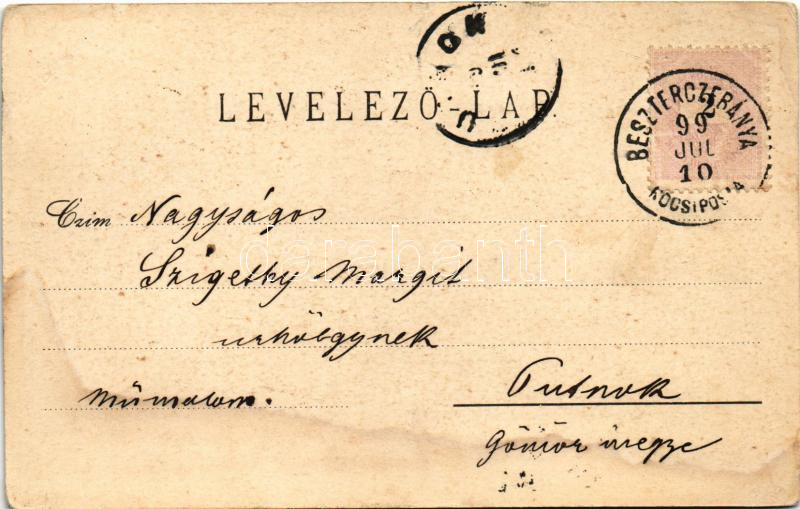 LEVELEZŐ-LAP.
BESZTERCZEBÁNYA
99
JUL
10
KOCSIPOSTA
Czim Nagyságos
Szigethy Margit
urhölgynek
Műmalom.
Putnok
Gömör megye
darabanth